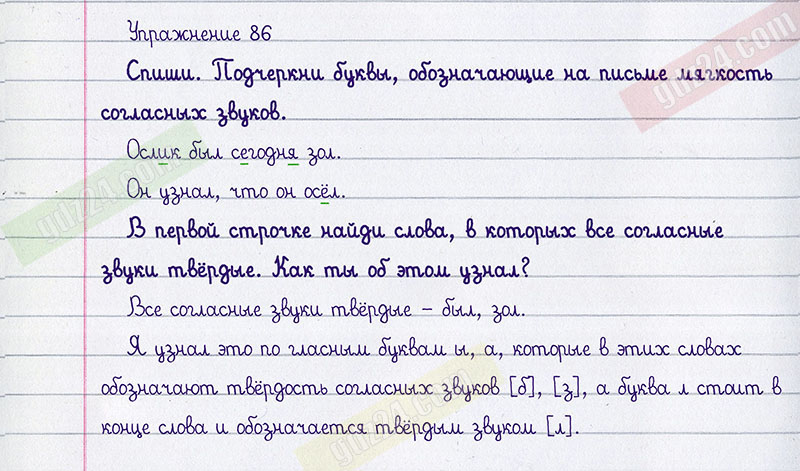 Упражнение 86
Спиши. Подчеркни буквы, обозначающие на письме мягкость
согласных звуков.
Ослик был сегодня зол.
Он узнал, что он осёл.
В первой строчке найди слова, в которых все согласные
звуки твёрдые. Как ты об этом узнал?
Все согласные звуки твёрдые – был, зол.
Я узнал это по гласным буквам ы, а, которые в этих словах
обозначают твёрдость согласных звуков [б], [з], а буква л стоит в
конце слова и обозначается твёрдым звуком [л].
gdz24.com
gdz24.com
gdz24.com